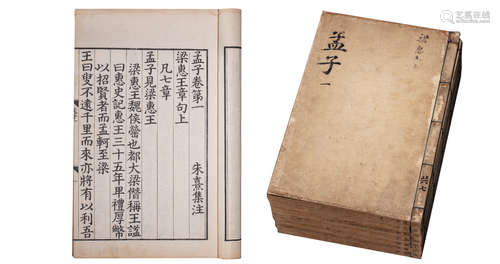 孟子卷第一
梁惠王章句上
朱熹集注
凡七章
孟子見梁惠王
梁惠王魏侯罃也都大梁僭稱王謚
曰惠史記惠王三十五年卑禮厚幣
以招賢者而孟軻至梁
王曰叟不遠千里而來亦將有以利吾
孟子
一
梁惠王上
共七